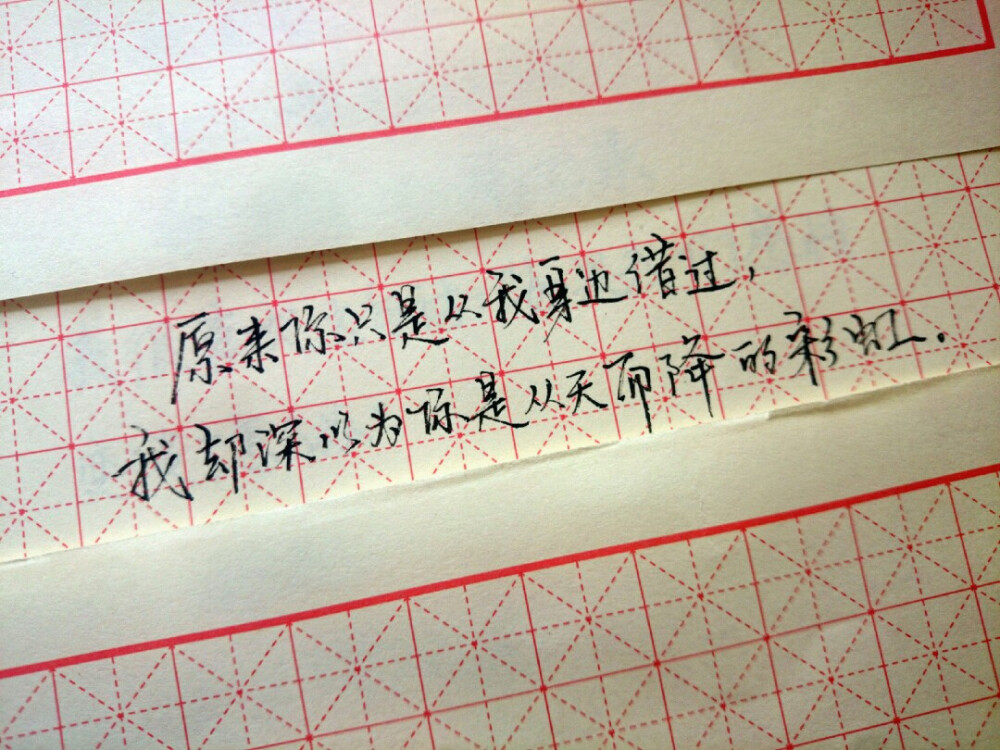 原来你只是从我身边借过，
我却深以为你是从天而降的彩虹.